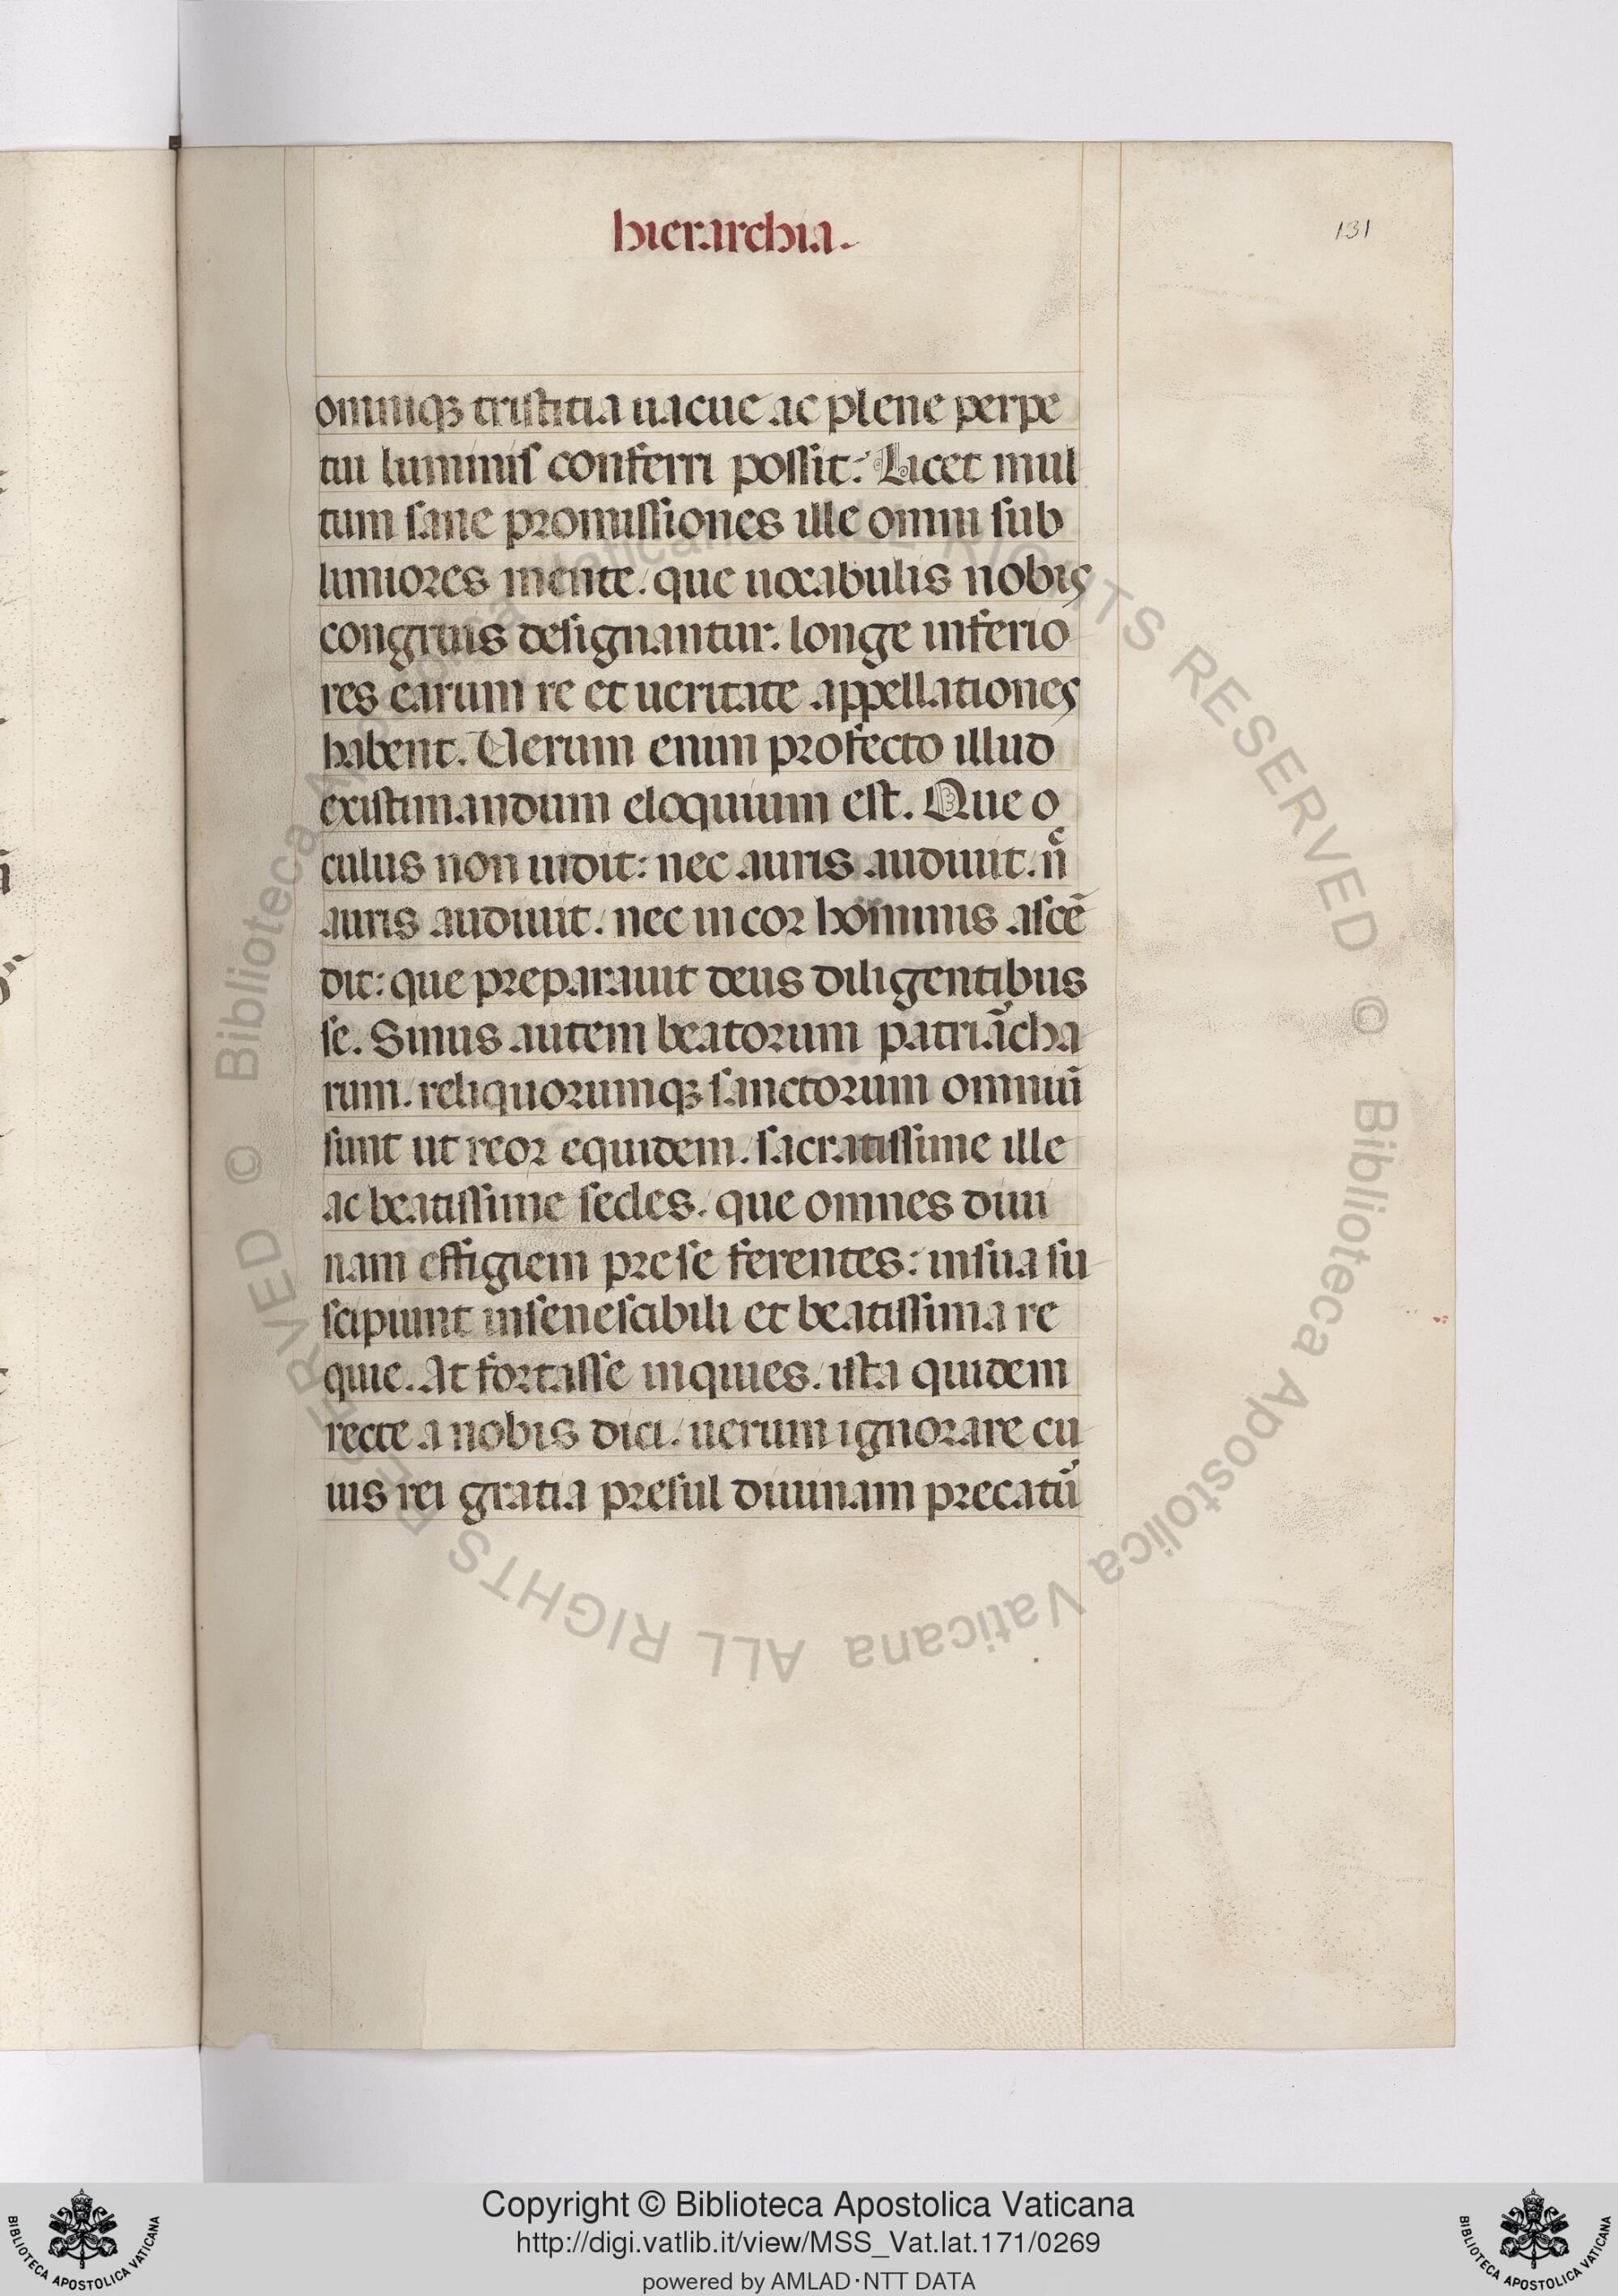 hierarchia.
131
omniqꝫ tristitia uacue ac plene perpe
tui luminis conferri possit: Licet mul
tum sane promissiones ille omni sub
limiores mente. que uocabulis nobis
congruis designantur. longe inferio
res earum re et ueritate appellationes
habent. Uerum enim profecto illud
existimandum eloquium est. Que o
culus non uidit: nec auris audiuit. nͨ
auris audiuit. nec in cor hominis ascē
dit: que preparauit deus diligentibus
se. Sinus autem beatorum patriācha
rum. reliquorumqꝫ sanctorum omniū
sunt ut reor equidem. sacratissime ille
ac beatissime sedes. que omnes diui
nam effigiem pre se ferentes: in sua su
scipiunt insenescibili et beatissima re
quie. At fortasse inquies. ista quidem
recte a nobis dici. uerum ignorare cu
ius rei gratia presul diuinam precatū
© Biblioteca Apostolica Vaticana ALL RIGHTS RESERVED © Biblioteca Apostolica Vaticana ALL RIGHTS RESERVED
Copyright © Biblioteca Apostolica Vaticana
http://digi.vatlib.it/view/MSS_Vat.lat.171/0269
powered by AMLAD·NTT DATA
BIBLIOTECA APOSTOLICA VATICANA
BIBLIOTECA APOSTOLICA VATICANA